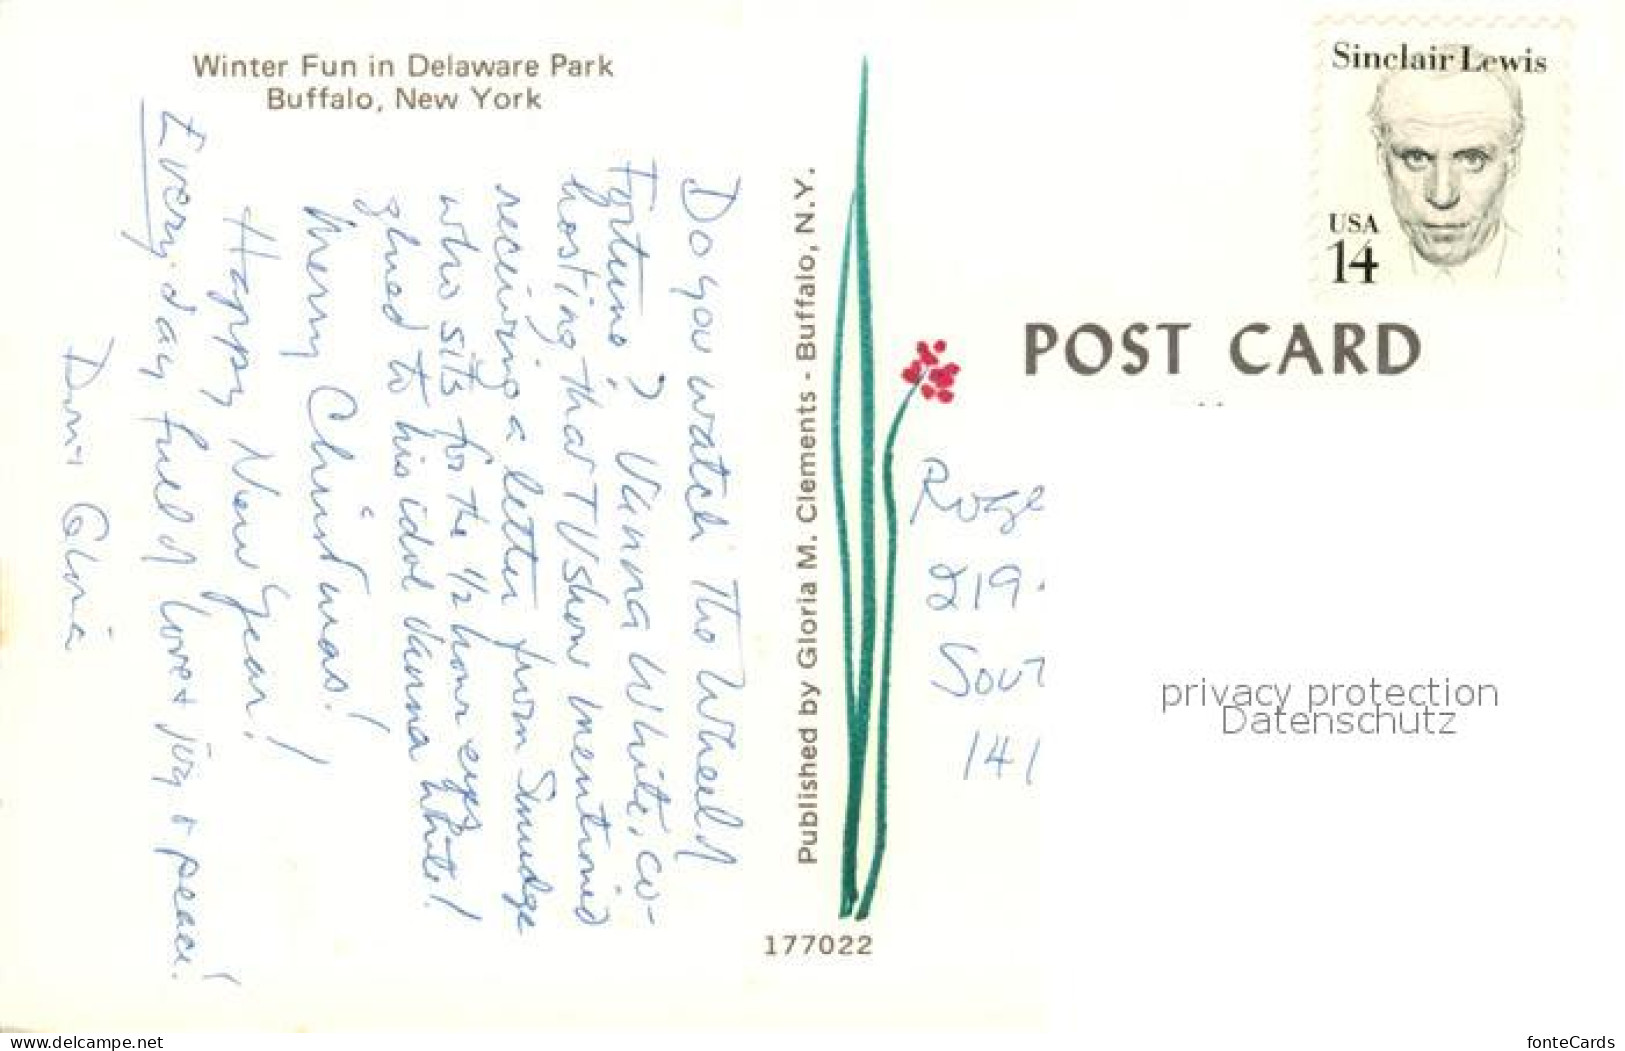 Winter Fun in Delaware Park
Buffalo, New York
Do you watch The Wheel of
Fortune? Vanna White, co-
hosting that TV show mentioned
receiving a letter from Smudge
who sits for the 1/2 hour eyes
glued to his idol Vanna White!
Merry Christmas!
Happy New Year!
Every day full of love + joy + peace!
Gloria
Published by Gloria M. Clements - Buffalo, N.Y.
177022
Sinclair Lewis
USA
14
POST CARD
219
141
privacy protection
Datenschutz
www.delcampe.net
fonteCards